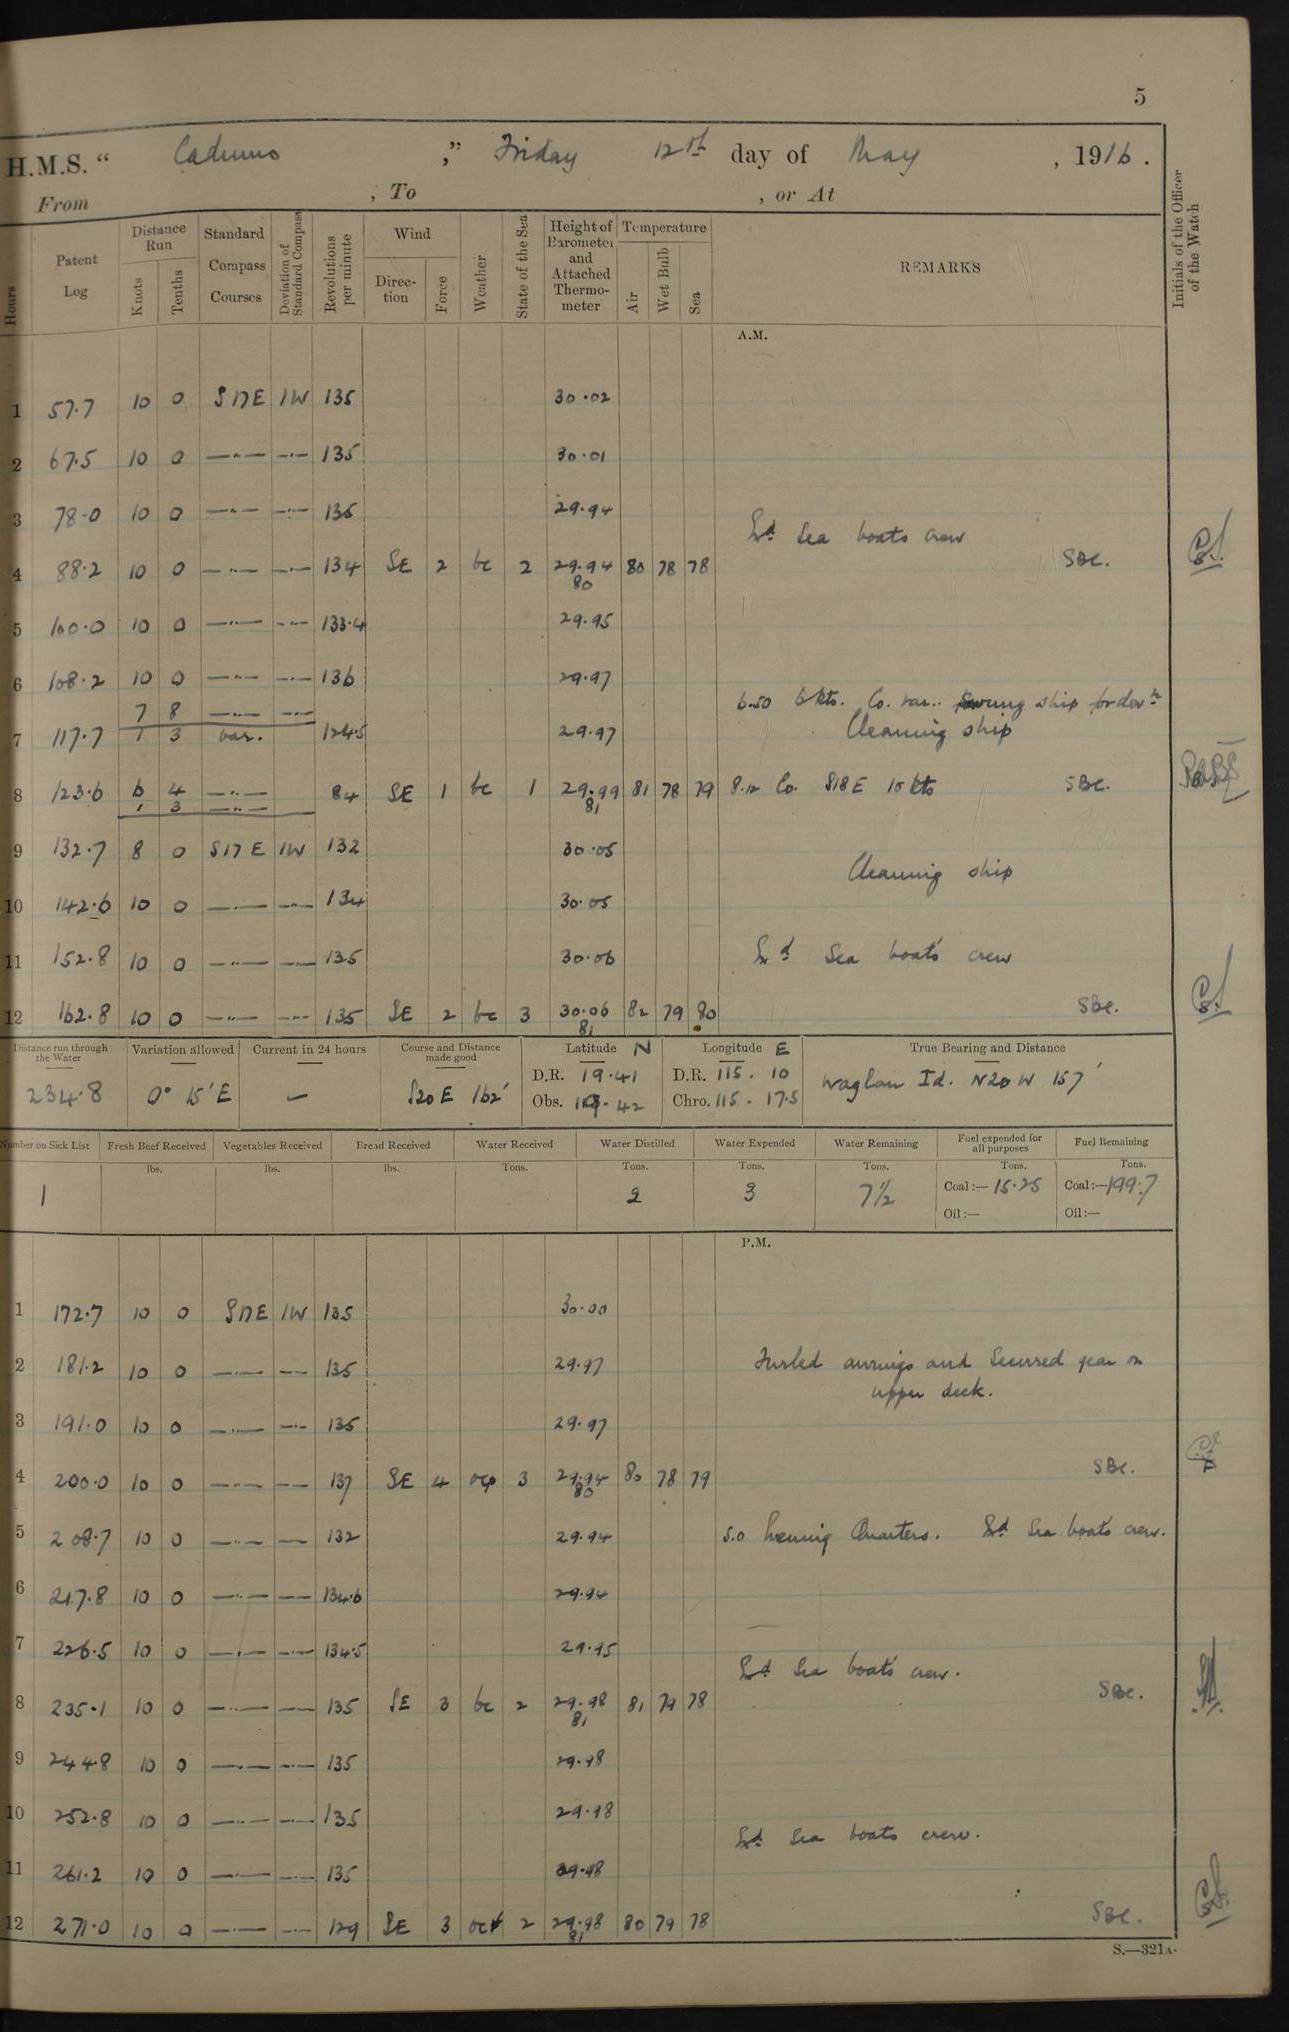 5
H.M.S. “ Cadmus ,” Friday 12th day of May , 1916 .
From , To , or At
Hours
Patent Log
Distance Run
Knots
Tenths
Standard Compass Courses
Deviation of Standard Compass
Revolutions per minute
Wind
Direction
Force
Weather
State of the Sea
Height of Barometer and Attached Thermometer
Temperature
Air
Wet Bulb
Sea
REMARKS
Initials of the Officer of the Watch
A.M.
1 57.7 10 0 S17E 1W 135 30.02
2 67.5 10 0 —"— —"— 135 30.01
3 78.0 10 0 —"— —"— 135 29.94
Exd Sea boats crew
4 88.2 10 0 —"— —"— 134 SE 2 bc 2 29.94 80 78 78 SBC.
80
5 100.0 10 0 —"— —"— 133.4 29.95
6 108.2 10 0 —"— —"— 136 29.97
6.50 6 kts. Co. var. Swung ship for devn
7 8 —"— —"—
7 117.7 1 3 var. 124.5 29.97 Cleaning ship
8 123.6 6 4 —"— 84 SE 1 bc 1 29.99 81 78 79 8.12 Co. S18E 10 kts SBC.
1 3 —"— 81
9 132.7 8 0 S17E 1W 132 30.05
Cleaning ship
10 142.6 10 0 —"— —"— 134 30.05
11 152.8 10 0 —"— —"— 135 30.06 Exd Sea boat's crew
12 162.8 10 0 —"— —"— 135 SE 2 bc 3 30.06 82 79 80 SBC.
81
Distance run through the Water
234.8
Variation allowed
0° 15' E
Current in 24 hours
—
Course and Distance made good
S20E 162'
Latitude N
D.R. 19.41
Obs. 19.42
Longitude E
D.R. 115.10
Chro. 115.17.5
True Bearing and Distance
Waglan Id. N20W 157'
Number on Sick List
1
Fresh Beef Received
lbs.
Vegetables Received
lbs.
Bread Received
lbs.
Water Received
Tons.
Water Distilled
Tons.
2
Water Expended
Tons.
3
Water Remaining
Tons.
7½
Fuel expended for all purposes
Tons.
Coal:— 15.25
Oil:—
Fuel Remaining
Tons.
Coal:— 199.7
Oil:—
P.M.
1 172.7 10 0 S17E 1W 135 30.00
2 181.2 10 0 —"— —"— 135 29.97 Furled awnings and Secured gear on
upper deck.
3 191.0 10 0 —"— —"— 135 29.97
4 200.0 10 0 —"— —"— 137 SE 4 ocp 3 29.94 80 78 79 SBC.
80
5 208.7 10 0 —"— —"— 132 29.94 5.0 Evening Quarters. Exd Sea boat's crew.
6 217.8 10 0 —"— —"— 134.6 29.94
7 226.5 10 0 —"— —"— 134.5 29.95
Exd Sea boat's crew.
8 235.1 10 0 —"— —"— 135 SE 3 bc 2 29.98 81 79 78 SBC.
81
9 244.8 10 0 —"— —"— 135 29.98
10 252.8 10 0 —"— —"— 135 29.98
Exd Sea boats crew.
11 261.2 10 0 —"— —"— 135 29.98
12 271.0 10 0 —"— —"— 129 SE 3 2 29.98 80 79 78 SBC.
81
S.—321A.